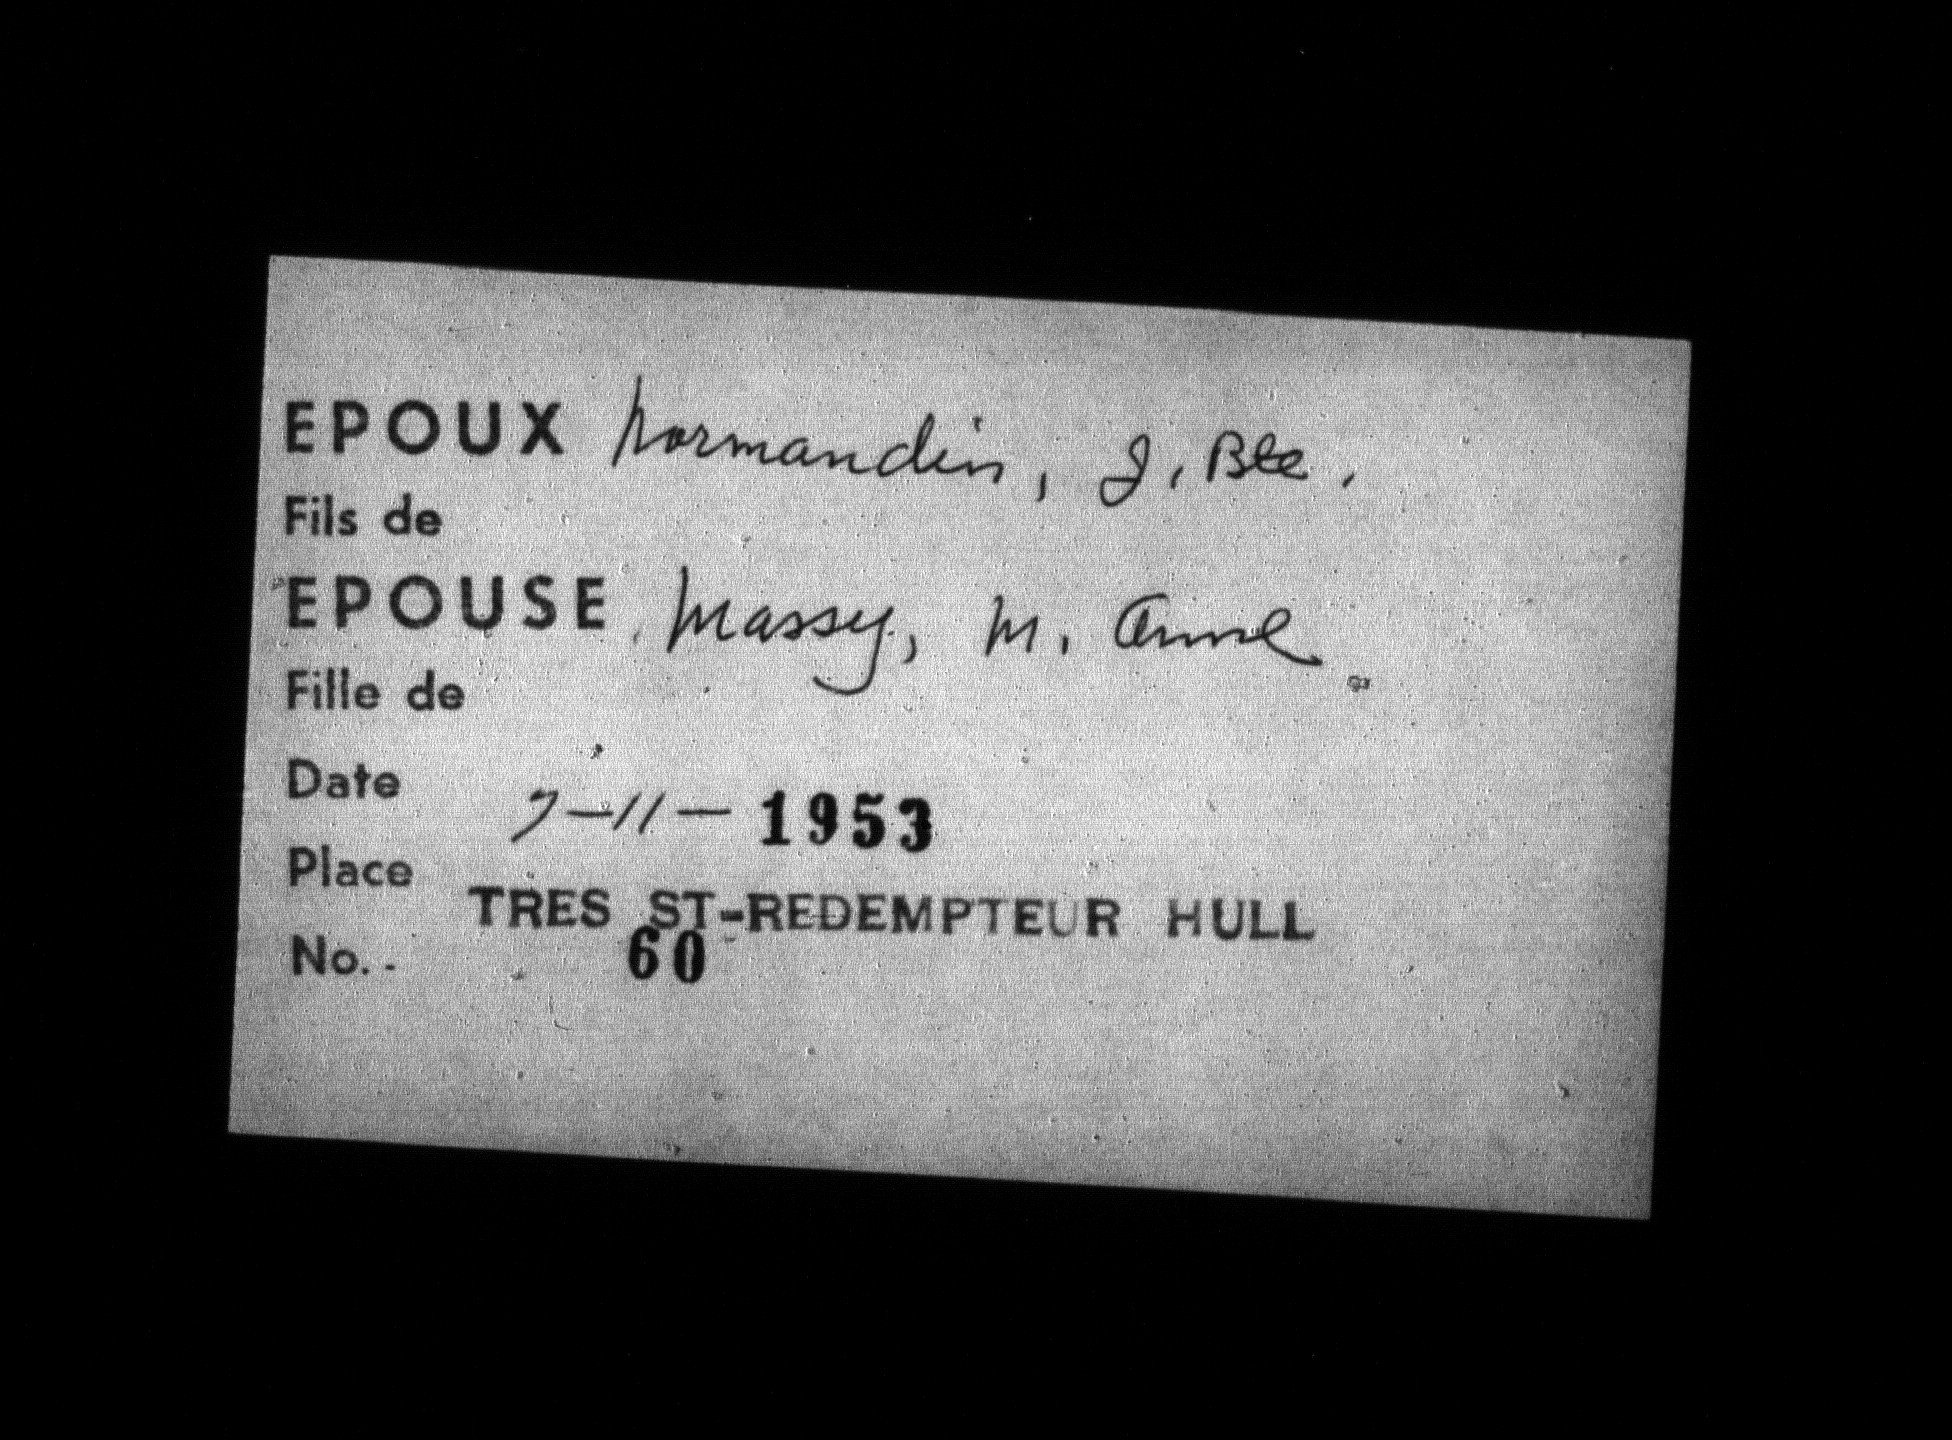 EPOUX Normandin, J. Bte.
Fils de
EPOUSE Massy, M. Anne
Fille de
Date 7-11-1953
Place TRES ST-REDEMPTEUR HULL
No. - 60